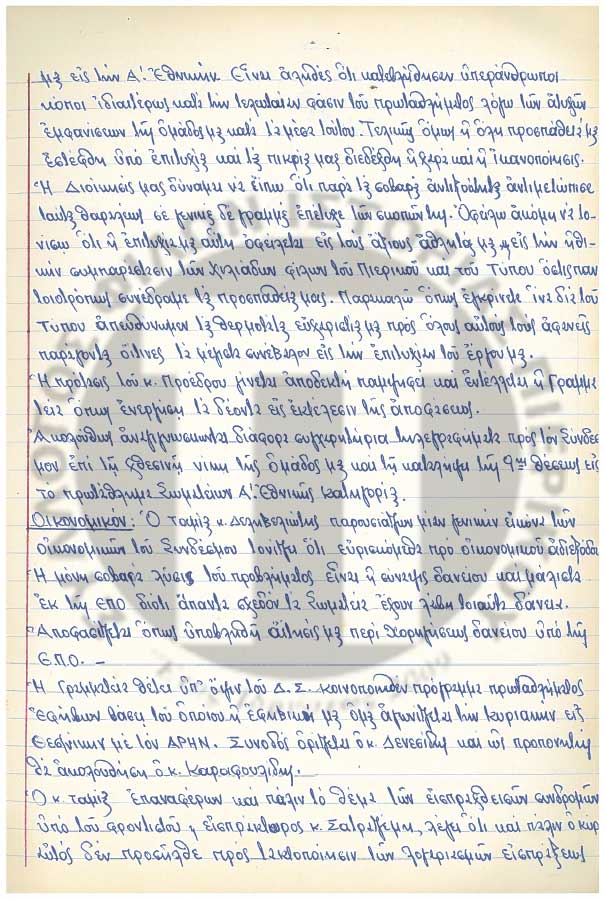 μας εἰς τὴν Α΄. Ἐθνικήν. Εἶναι ἀληθὲς ὅτι κατεβλήθησαν ὑπεράνθρωποι
κόποι ἰδιαιτέρως κατὰ τὴν τελευταίαν φάσιν τοῦ πρωταθλήματος λόγω τῶν ἀτυχῶν
ἐμφανίσεων τῆς ὁμάδος μας κατὰ τὰ μέσα τούτου. Τελικῶς ὅμως ἡ ὅλη προσπάθειά μας
ἐστέφθη ὑπὸ ἐπιτυχίας καὶ τὰς πικρίας μας διεδέχθη ἡ χαρὰ καὶ ἡ ἱκανοποίησις.
Ἡ Διοίκησίς μας δύναμαι νὰ εἴπω ὅτι παρὰ τὰς σοβαρὰς ἀντιξοότητας ἀντιμετώπισε
ταύτας θαρραλέως σὲ γενικὲς δὲ γραμμὲς ἐπέτυχε τῶν σκοπῶν της. Ὀφείλω ἀκόμη νὰ το-
νίσω ὅτι ἡ ἐπιτυχία μας αὕτη ὀφείλεται εἰς τοὺς ἀξίους ἀθλητάς μας, εἰς τὴν ἠθι-
κὴν συμπαράστασιν τῶν χιλιάδων φίλων τοῦ Πιερικοῦ καὶ τοῦ Τύπου ὅστις παν
τοιοτρόπως συνέδραμε τὰς προσπαθείας μας. Παρακαλῶ ὅπως ἐγκρίνετε ἵνα διὰ τοῦ
Τύπου ἀπευθύνωμεν τὰς θερμοτάτας εὐχαριστίας μας πρὸς ὅλους αὐτοὺς τοὺς ἀφανεῖς
παράγοντας οἵτινες τὰ μέγιστα συνέβαλον εἰς τὴν ἐπιτυχίαν τοῦ ἔργου μας.
Ἡ πρότασις τοῦ κ. Προέδρου γίνεται ἀποδεκτὴ παμψηφεί καὶ ἐντέλλεται ἡ Γραμμα
τεία ὅπως ἐνεργήσῃ τὰ δέοντα εἰς ἐκτέλεσιν τῆς ἀποφάσεως.
Ἀκολούθως ἀναγιγνώσκονται διάφορα συγχαρητήρια τηλεγραφήματα πρὸς τὸν Σύνδεσ
μον ἐπὶ τῇ χθεσινῇ νίκῃ τῆς ὁμάδος μας καὶ τῇ καταλήψει τῆς 9ης θέσεως εἰς
τὸ πρωτάθλημα Σωματείων Α΄. Ἐθνικῆς Κατηγορίας.
Οἰκονομικόν: Ὁ ταμίας κ. Δεληβελιώτης παρουσιάζων μίαν γενικὴν εἰκόνα τῶν
οἰκονομικῶν τοῦ Συνδέσμου τονίζει ὅτι εὑρισκόμεθα πρὸ οἰκονομικοῦ ἀδιεξόδου
Ἡ μόνη σοβαρὰ λύσις τοῦ προβλήματος εἶναι ἡ σύναψις δανείου καὶ μάλιστα
ἐκ τῆς ΕΠΟ διότι ἅπαντα σχεδὸν τὰ Σωματεῖα ἔχουν λάβει τοιαῦτα δάνεια.
Ἀποφασίζεται ὅπως ὑποβληθῇ αἴτησίς μας περὶ χορηγήσεως δανείου ὑπὸ τῆς
Ε.Π.Ο. —
Ἡ Γραμματεία θέτει ὑπ' ὄψιν τοῦ Δ.Σ. κοινοποιηθὲν πρόγραμμα πρωταθλήματος
Ἐφήβων βάσει τοῦ ὁποίου ἡ ἐφηβική μας ὁμὰς ἀγωνίζεται τὴν Κυριακὴν εἰς
Θεσ/νίκην μὲ τὸν ΑΡΗΝ. Συνοδὸς ὁρίζεται ὁ κ. Δενεσίδης καὶ ὡς προπονητὴς
θὰ ἀκολουθήσῃ ὁ κ. Καραφουλίδης.
Ὁ κ. ταμίας ἐπαναφέρων καὶ πάλιν τὸ θέμα τῶν εἰσπραχθεισῶν συνδρομῶν
ὑπὸ τοῦ φροντιστοῦ & εἰσπράκτορος κ. Σατραζέμη, λέγει ὅτι καὶ πάλιν ὁ κύρ
αὐτὸς δὲν προσῆλθε πρὸς τακτοποίησιν τῶν λογαριασμῶν εἰσπράξεως